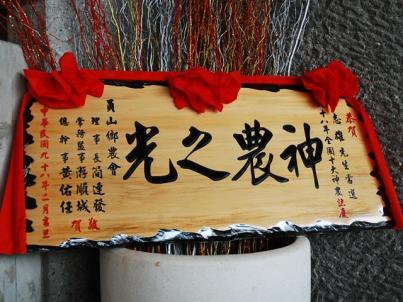 恭賀
志雄先生當選
九十八年全國十大神農誌慶
神農之光
員山鄉農會
理事長簡達發
常務監事游順城
總幹事黃佑任
敬賀
中華民國九十八年二月吉旦